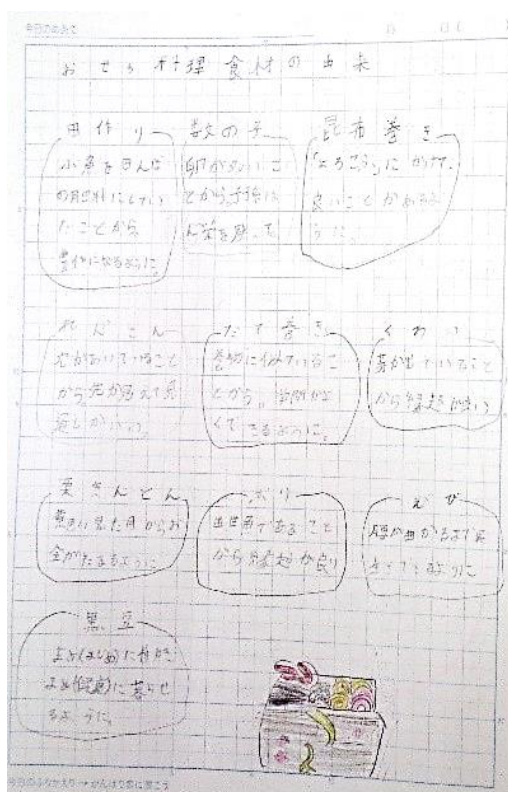 今日のめあて
おせち料理食材の由来
田作り
小魚を田んぼ
の肥料にしてい
たことから
豊作になるように。
数の子
卵が多いこ
とから、子孫は
ん栄を願って
昆布巻き
「よろこぶ」にかけて、
良いことがあるよ
うに。
れんこん
穴があいていること
から、先が見えて見
通しがいい。
だて巻き
巻物に似ているこ
とから、学問がよ
くできるように。
くわい
芽が出ていること
から縁起が良い
栗きんとん
黄色い見た目からお
金がたまるように
ぶり
出世魚であること
から縁起が良い
えび
腰が曲がるまで長
ように
黒豆
まめ(まじめ)に働き
まめ(健康)に暮らせ
るように。
今日のふりかえり→がんばり表に書こう